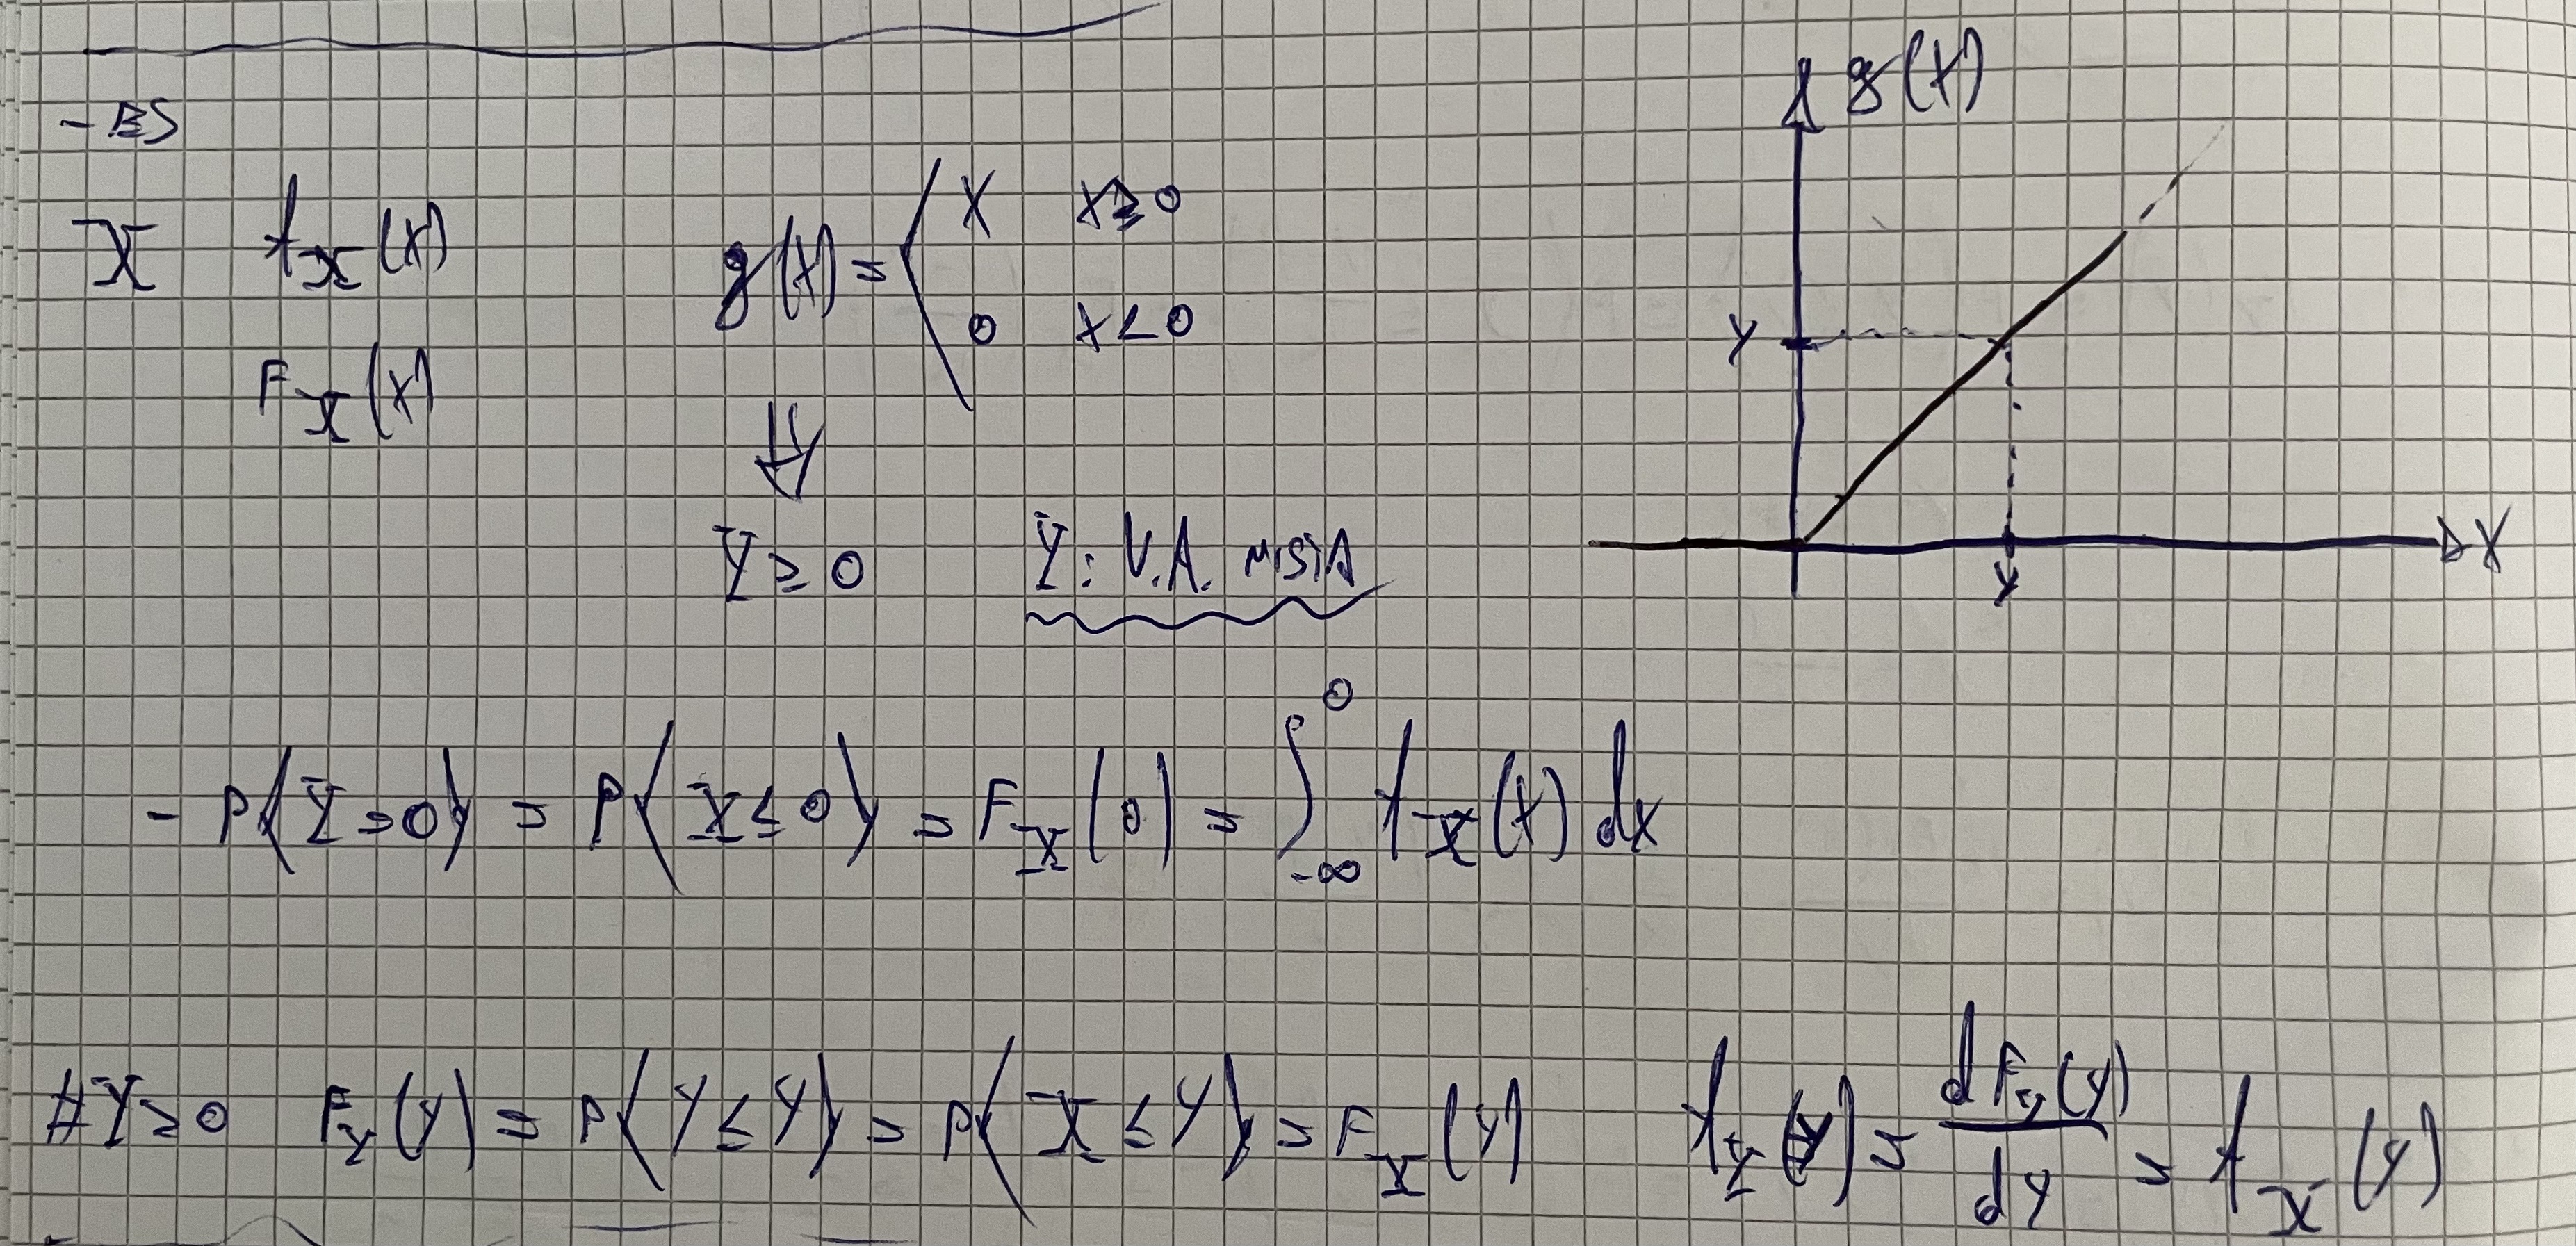 - ES
X f_X(x) g(x) = { x x ≥ 0
0 x < 0
F_X(x)
⇓
Y ≥ 0 Y: V.A. MISTA
g(x)
y
y
x
- P{Y = 0} = P{X ≤ 0} = F_X(0) = ∫_{-∞}^{0} f_X(x) dx
# Y ≥ 0 F_Y(y) = P{Y ≤ y} = P{X ≤ y} = F_X(y) f_Y(y) = dF_Y(y)/dy = f_X(y)